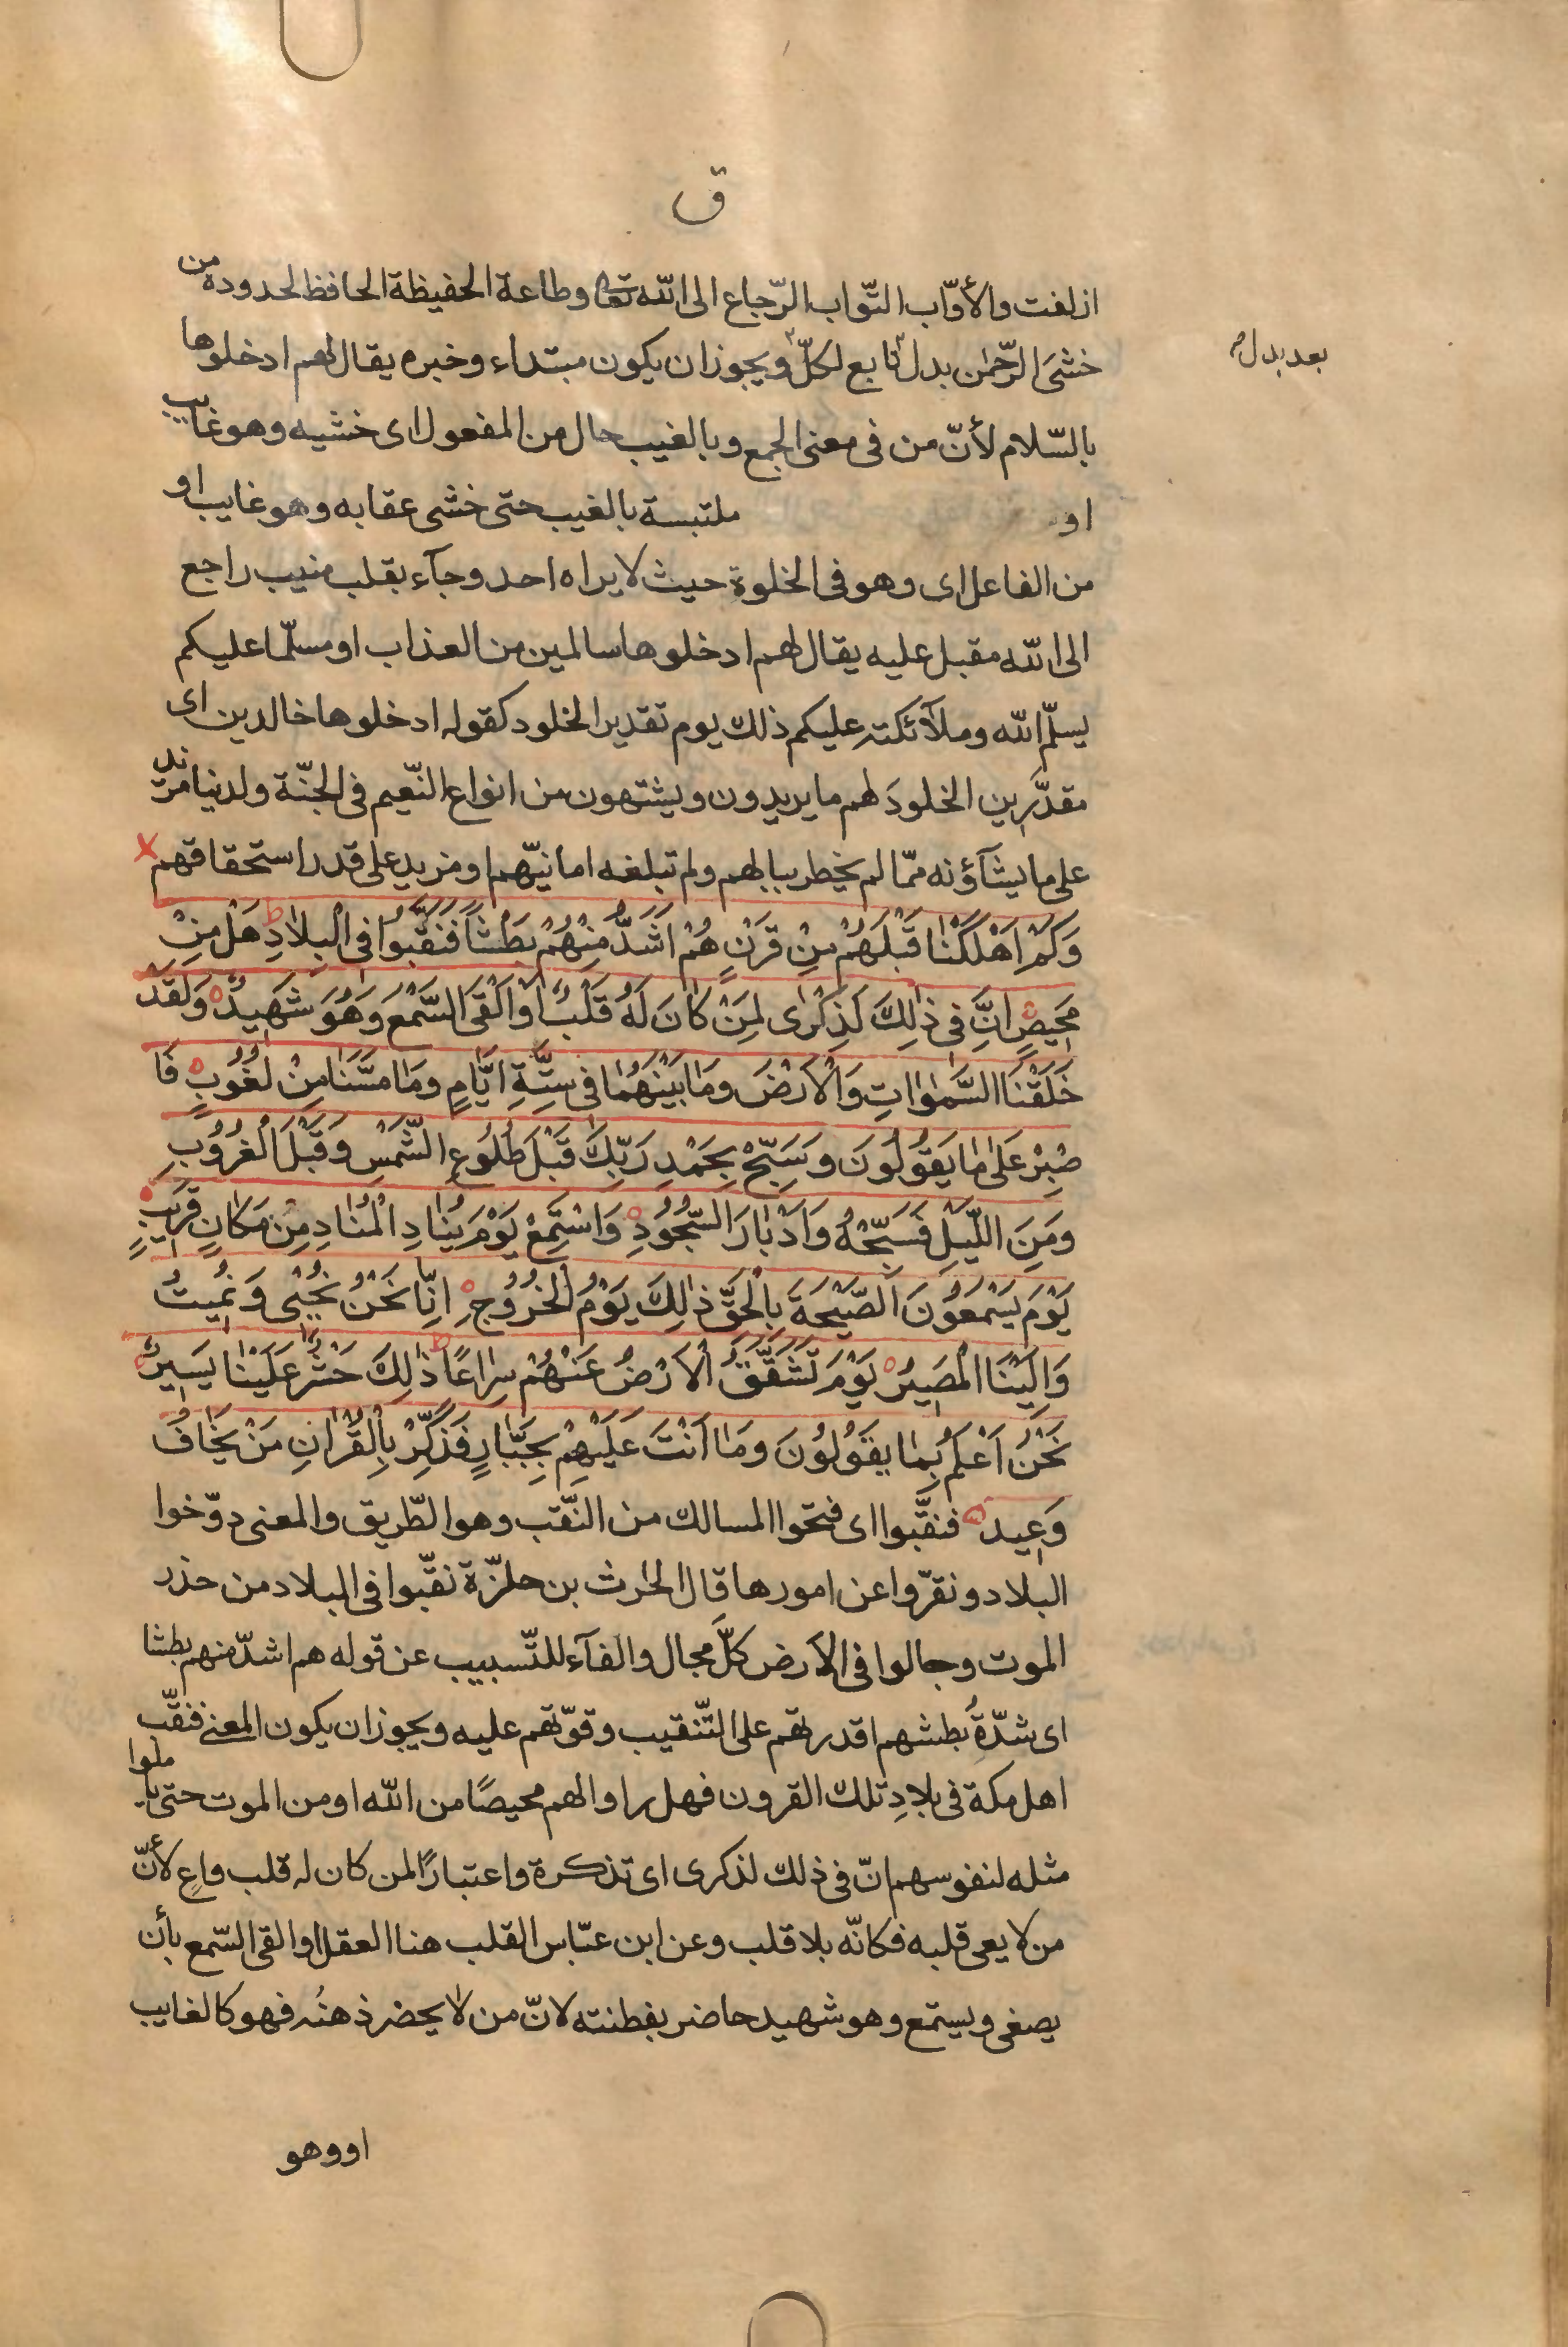 ق
ازلفت والأوّاب التّواب الرّجاع الى الله تعالى وطاعة الحفيظة الحافظ لحدوده من
خشى الرّحمن بدل تابع لكلّ ويجوز ان يكون مبتداء وخبره يقال لهم ادخلوها
بعد بدل
بالسّلام لأنّ من فى معنى الجمع وبالغيب حال من المفعول اى خشيه وهو غايب
او ملتبسة بالغيب حتى خشى عقابه وهو غايب او
من الفاعل اى وهو فى الخلوة حيث لا يراه احد وجآء بقلب منيب راجع
الى الله مقبل عليه يقال لهم ادخلوها سالمين من العذاب او مسلّما عليكم
يسلّم الله وملآئكته عليكم ذلك يوم تقدير الخلود كقوله ادخلوها خالدين اى
مقدّرين الخلود لهم ما يريدون ويشتهون من انواع النّعيم فى الجنّة ولدينا مزيد
على ما يشآؤنه ممّا لم يخطر ببالهم ولم تبلغه امانيّهم او مزيد على قدر استحقاقهم
وَكَمْ اَهْلَكْنا قَبْلَهُمْ مِنْ قَرْنٍ هُمْ اَشَدُّ مِنْهُمْ بَطْشاً فَنَقَّبُوا فِى الْبِلادِ ط هَلْ مِنْ
مَحِيصٍ اِنَّ فى ذلِكَ لَذِكْرى لِمَنْ كانَ لَهُ قَلْبٌ اَوْ اَلْقَى السَّمْعَ وَهُوَ شَهِيدٌ وَلَقَدْ
خَلَقْنَا السَّمواتِ وَالْاَرْضَ وَما بَيْنَهُما فى سِتَّةِ اَيَّامٍ وَما مَسَّنا مِنْ لُغُوبٍ فَا
صْبِرْ عَلى ما يَقُولُونَ وَسَبِّحْ بِحَمْدِ رَبِّكَ قَبْلَ طُلُوعِ الشَّمْسِ وَقَبْلَ الْغُرُوبِ
وَمِنَ اللَّيْلِ فَسَبِّحْهُ وَاَدْبارَ السُّجُودِ وَاسْتَمِعْ يَوْمَ يُنادِ الْمُنادِ مِنْ مَكانٍ قَرِيبٍ
يَوْمَ يَسْمَعُونَ الصَّيْحَةَ بِالْحَقِّ ذلِكَ يَوْمُ الْخُرُوجِ اِنّا نَحْنُ نُحْيى وَنُمِيتُ
وَاِلَيْنَا الْمَصِيرُ يَوْمَ تَشَقَّقُ الْاَرْضُ عَنْهُمْ سِراعًا ط ذلِكَ حَشْرٌ عَلَيْنا يَسِيرٌ
نَحْنُ اَعْلَمُ بِما يَقُولُونَ وَما اَنْتَ عَلَيْهِمْ بِجَبّارٍ فَذَكِّرْ بِالْقُرْانِ مَنْ يَخافُ
وَعِيدِ فنقّبوا اى فتحوا المسالك من النّقب وهو الطّريق والمعنى دوّخوا
البلاد ونقرّوا عن امورها قال الحرث بن حلزّة نقّبوا فى البلاد من حذر
الموت وجالوا فى الارض كلَّ مجال والفآء للتّسبيب عن قوله هم اشدّ منهم بطشا
اى شدّةُ بطشهم اقدرتهم على التّنقيب وقوّتهم عليه ويجوز ان يكون المعنى فنقّب
اهل مكة فى بلادِ تلك القرون فهل راوا لهم محيصًا من الله او من الموت حتى يأملوا
مثله لنفوسهم انّ فى ذلك لذكرى اى تذكرة واعتبارًا لمن كان له قلب واعٍ لأنّ
من لا يعى قلبه فكانّه بلا قلب وعن ابن عبّاس القلب هنا العقل او القى السّمع بأن
يصغى ويستمع وهو شهيد حاضر بفطنته لانّ من لا يحضر ذهنُه فهو كالغايب
او وهو